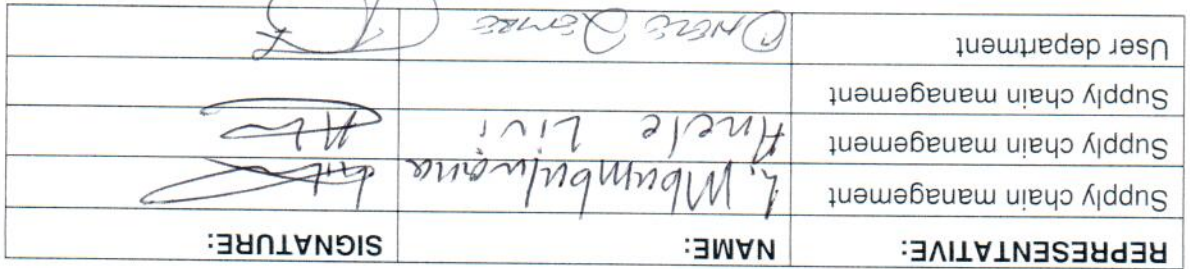 REPRESENTATIVE: NAME: SIGNATURE:
Supply chain management L. Mbumbulwana
Supply chain management Anele Livi
Supply chain management
User department